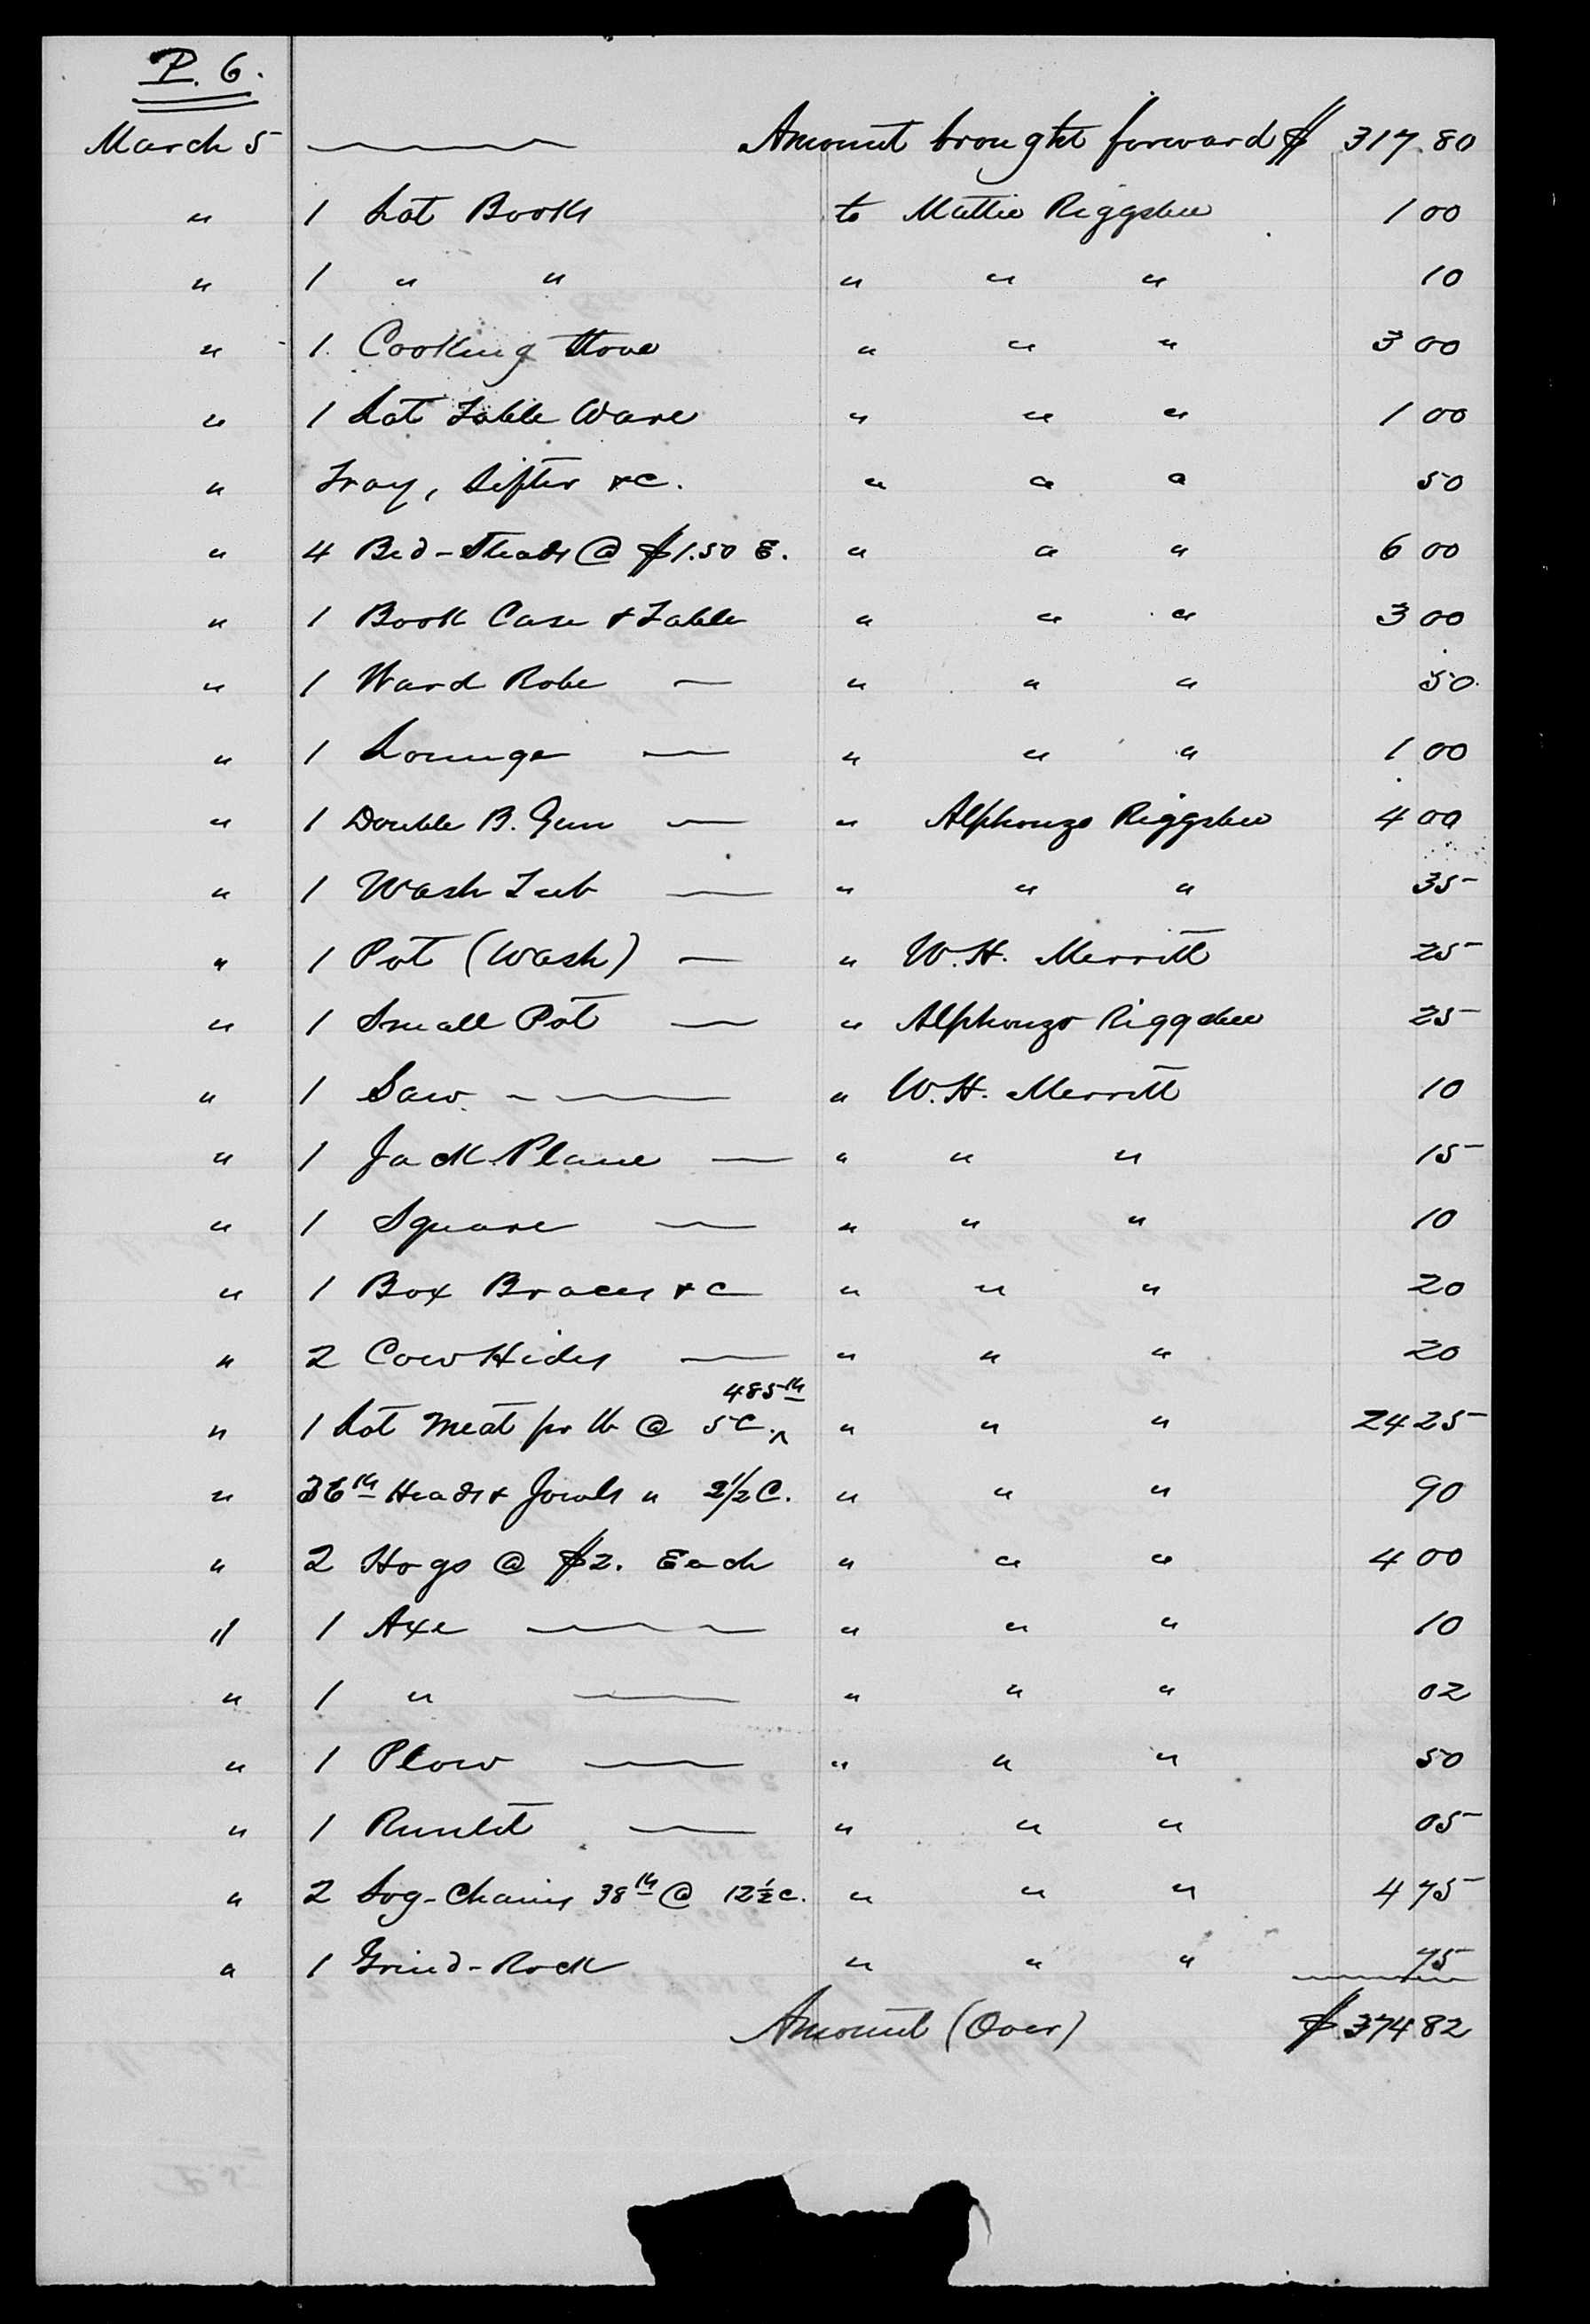 P. 6.
March 5 Amount brought forward $ 317.80
" 1 Lot Books to Mattie Riggsbee 1 00
" 1 " " " " " 10
" 1 Cooking Stove " " " 3 00
" 1 Lot Table Ware " " " 1 00
" Tray, Sifter &c. " " " 50
" 4 Bed-Steads @ $1.50 E. " " " 6 00
" 1 Book Case & Table " " " 3 00
" 1 Ward Robe — " " " 50
" 1 Lounge — " " " 1 00
" 1 Double B. Gun — " Alphonzo Riggsbee 4 00
" 1 Wash Tub — " " " 35
" 1 Pot (Wash) — " W. H. Merritt 25
" 1 Small Pot — " Alphonzo Riggsbee 25
" 1 Saw — " W. H. Merritt 10
" 1 Jack Plane — " " " 15
" 1 Square — " " " 10
" 1 Box Braces &c " " " 20
" 2 Cow Hides — " " " 20
" 1 Lot Meat pr lb @ 5C. ^ 485 lb " " " 24 25
" 36 lb Heads & Jowls " 2 1/2 C. " " " 90
" 2 Hogs @ $2. Each " " " 4 00
" 1 Axe — " " " 10
" 1 " — " " " 02
" 1 Plow — " " " 50
" 1 Runlet — " " " 05
" 2 Log-Chains 38 lb @ 12 1/2 c. " " " 4 75
" 1 Grind-Rock " " " 75
Amount (Over) $ 374.82